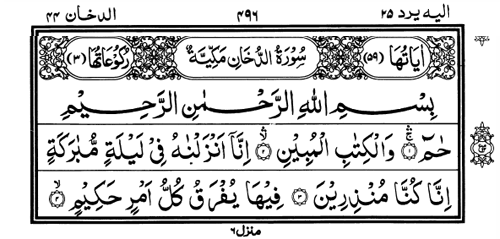 اليه يرد ٢٥ ٤٩٦ الدخان ٤٤
اٰيَاتُهَا (٥٩) سُوْرَةُ الدُّخَانِ مَكِّيَّةٌ رُكُوْعَاتُهَا (٣)
بِسْمِ اللهِ الرَّحْمٰنِ الرَّحِيْمِ
حٰمٓ ۚۛ ١ وَالْكِتٰبِ الْمُبِيْنِ ۙۛ ٢ اِنَّاۤ اَنْزَلْنٰهُ فِيْ لَيْلَةٍ مُّبٰرَكَةٍ
اِنَّا كُنَّا مُنْذِرِيْنَ ٣ فِيْهَا يُفْرَقُ كُلُّ اَمْرٍ حَكِيْمٍ ۙ ٤
منزل ٦